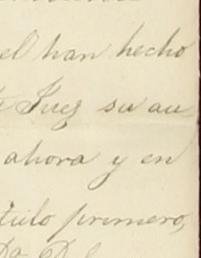 el han hecho
Juez su au
ahora y en
tulo primero,